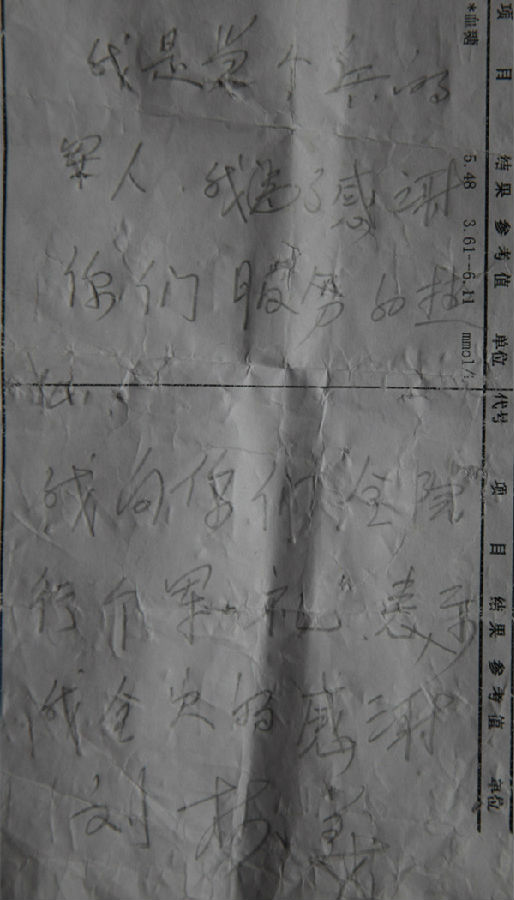 我是党个兵的
军人 我感谢
你们服务的
我向你们全院
行个军礼 表示
我全家的感谢
刘
项 目 结果 参考值 单位 代号 项 目 结果 参考值 单位
*血糖 5.48 3.61--6.11 mmol/